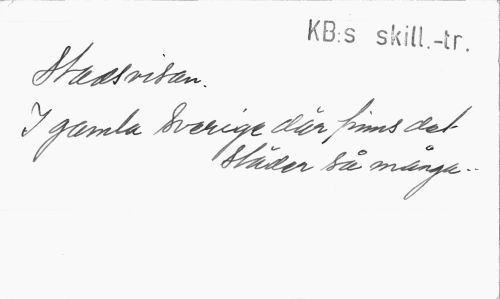 KB:s skill.-tr.
Stadsvisan.
I gamla Sverige där finns det
städer så många..